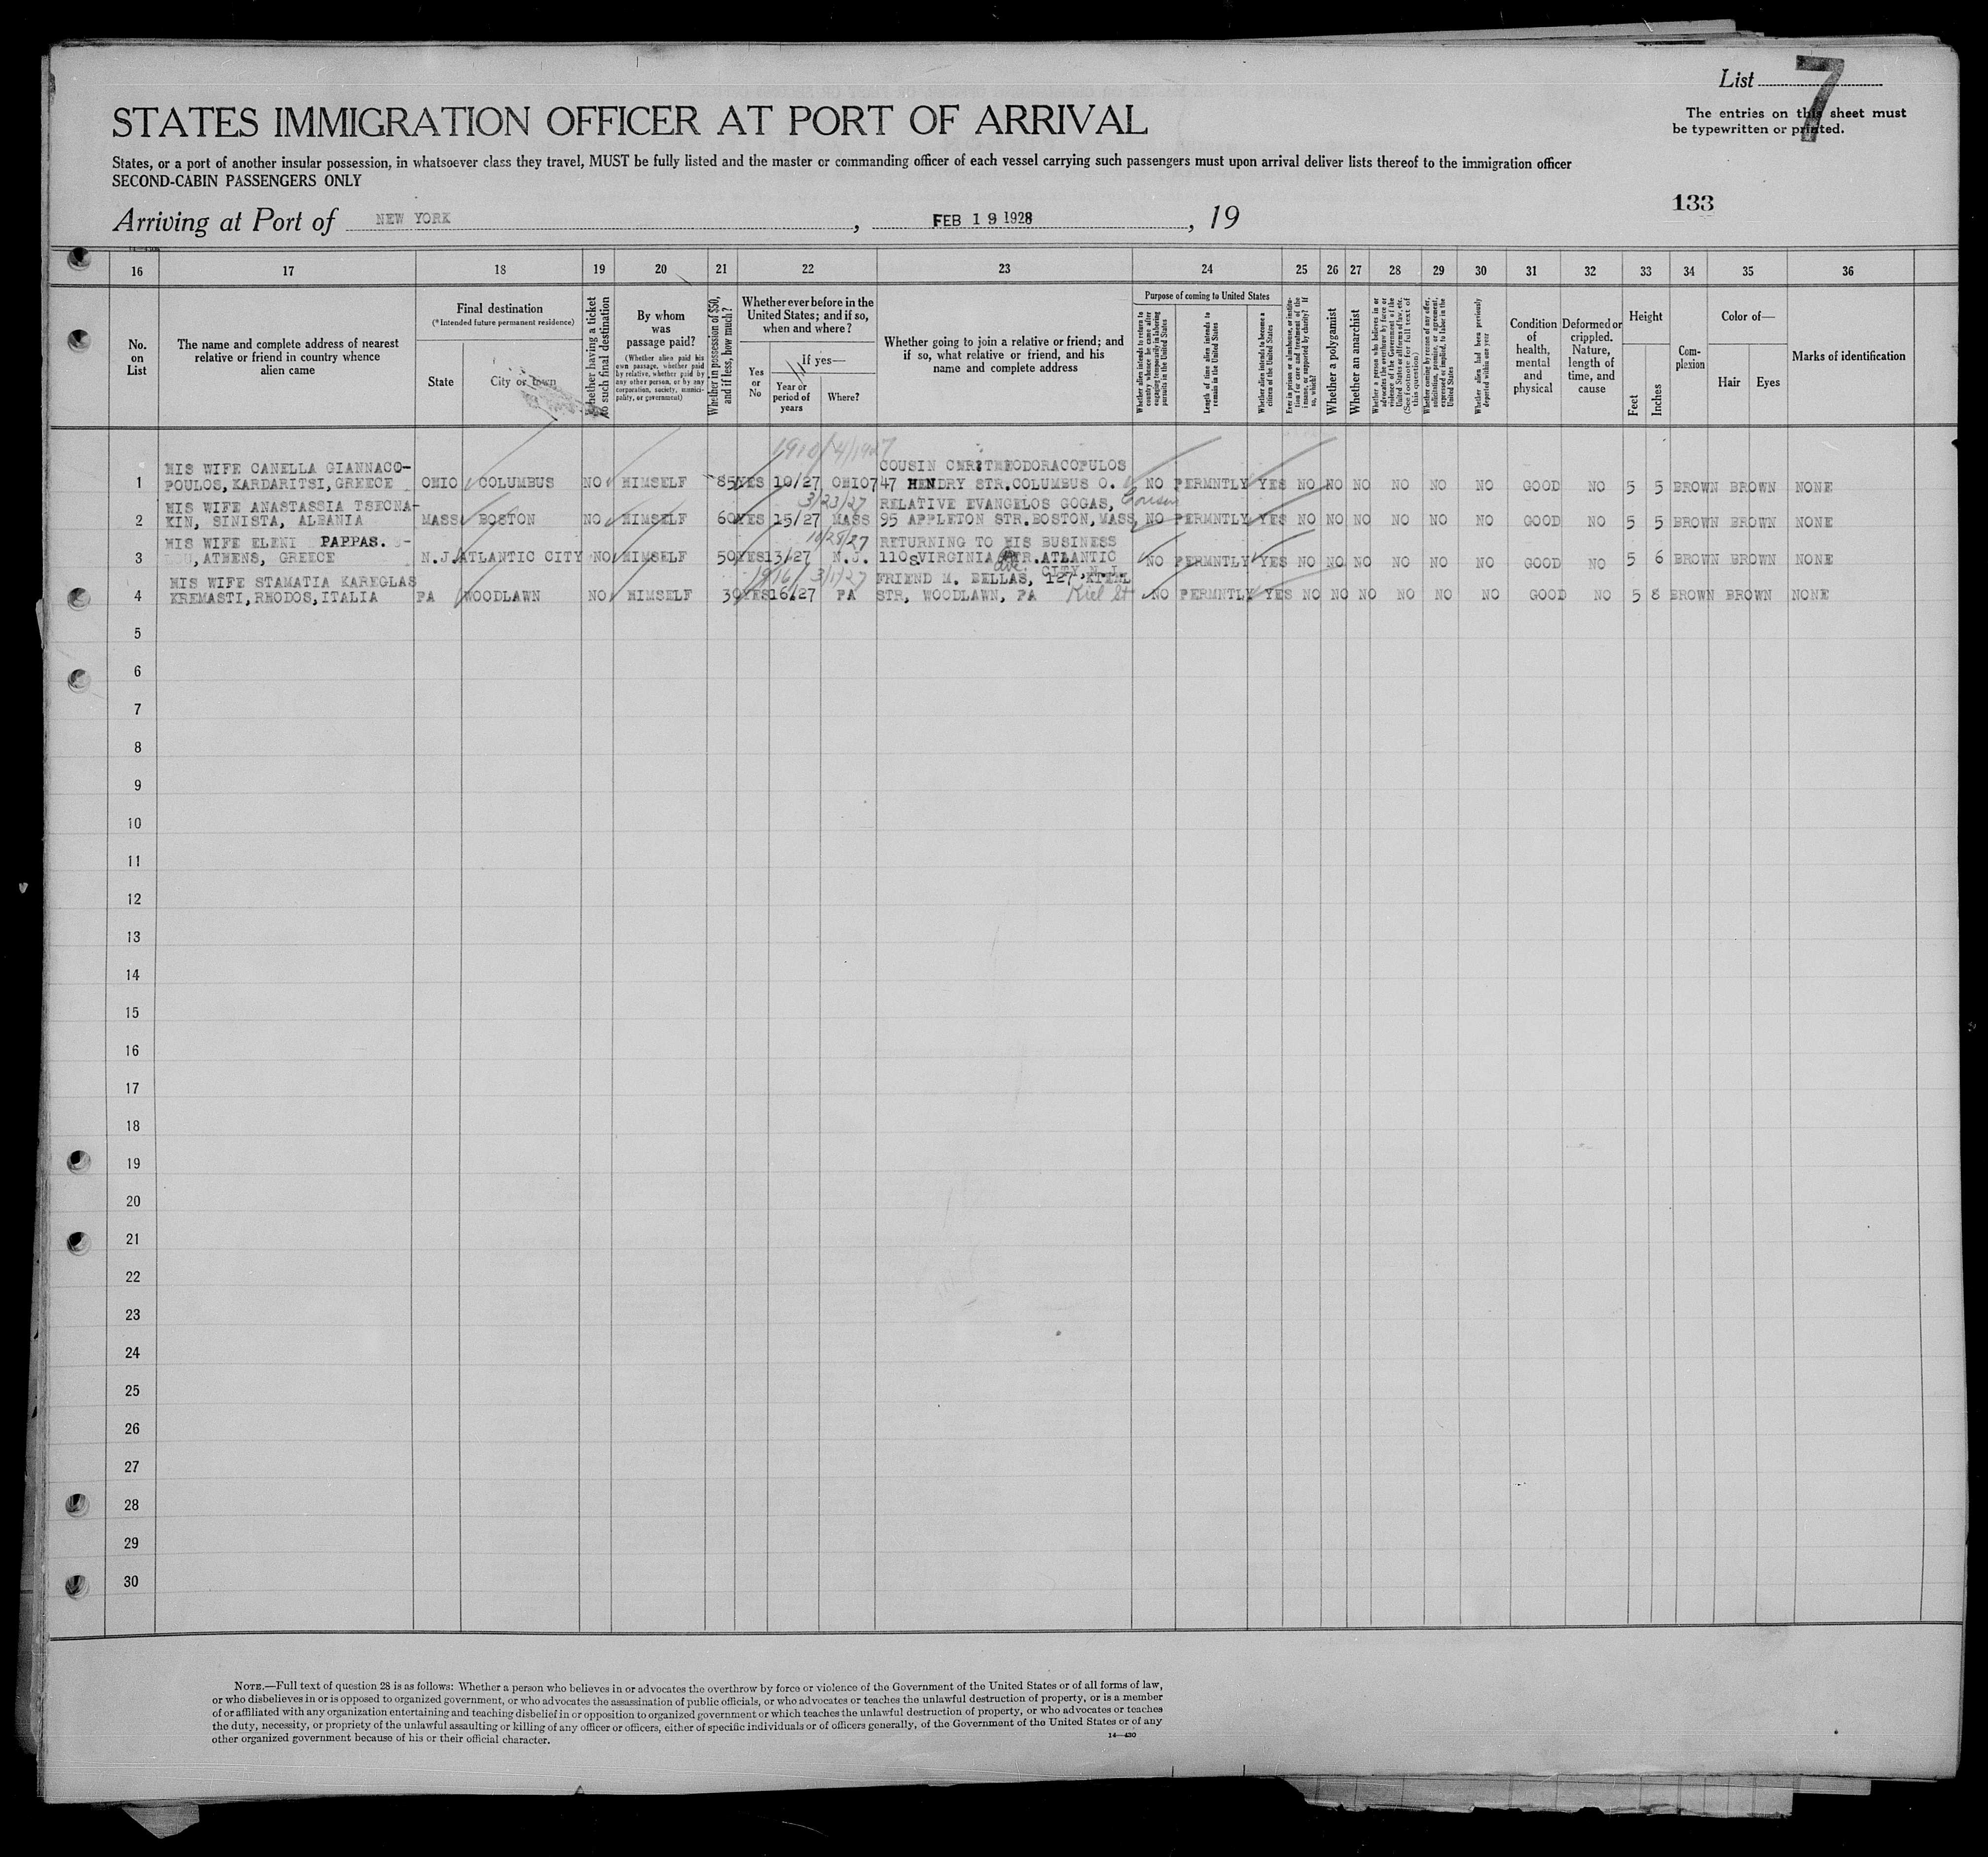 List 7
The entries on this sheet must
be typewritten or printed.
STATES IMMIGRATION OFFICER AT PORT OF ARRIVAL
States, or a port of another insular possession, in whatsoever class they travel, MUST be fully listed and the master or commanding officer of each vessel carrying such passengers must upon arrival deliver lists thereof to the immigration officer
SECOND-CABIN PASSENGERS ONLY
133
Arriving at Port of NEW YORK, FEB 19 1928, 19
16 17 18 19 20 21 22 23 24 25 26 27 28 29 30 31 32 33 34 35 36
No.
on
List
The name and complete address of nearest
relative or friend in country whence
alien came
Final destination
(*Intended future permanent residence)
State
City or town
Whether having a ticket
to such final destination
By whom
was
passage paid?
(Whether alien paid his
own passage, whether paid
by relative, whether paid by
any other person, or by any
corporation, society, munici-
pality, or government)
Whether in possession of $50,
and if less, how much?
Whether ever before in the
United States; and if so,
when and where?
Yes
or
No
If yes—
Year or
period of
years
Where?
Whether going to join a relative or friend; and
if so, what relative or friend, and his
name and complete address
Purpose of coming to United States
Whether alien intends to return to
country whence he came after
engaging temporarily in laboring
pursuits in the United States
Length of time alien intends to
remain in the United States
Whether alien intends to become a
citizen of the United States
Ever in prison or almshouse, or institu-
tion for care and treatment of the
insane, or supported by charity? If
so, which?
Whether a polygamist
Whether an anarchist
Whether a person who believes in or
advocates the overthrow by force or
violence of the Government of the
United States or all forms of law, etc.
(See footnote for full text of
this question.)
Whether coming by reason of any offer,
solicitation, promise, or agreement,
expressed or implied, to labor in the
United States
Whether alien had been previously
deported within one year
Condition
of
health,
mental
and
physical
Deformed or
crippled.
Nature,
length of
time, and
cause
Height
Feet
Inches
Com-
plexion
Color of—
Hair
Eyes
Marks of identification
1910/ 4/1927
HIS WIFE CANELLA GIANNACO- COUSIN CHR.THEODORACOPULOS
1 POULOS, KARDARITSI, GREECE OHIO COLUMBUS NO HIMSELF 85 YES 10/27 OHIO 747 HENDRY STR.COLUMBUS O. NO PERMNTLY YES NO NO NO NO NO NO GOOD NO 5 5 BROWN BROWN NONE
HIS WIFE ANASTASSIA TSECHA- 3/23/27 RELATIVE EVANGELOS GOGAS, Cousin
2 KIN, SINISTA, ALBANIA MASS BOSTON NO HIMSELF 60 YES 15/27 MASS 95 APPLETON STR.BOSTON,MASS, NO PERMNTLY YES NO NO NO NO NO NO GOOD NO 5 5 BROWN BROWN NONE
HIS WIFE ELENI PAPPAS. 10/28/27 RETURNING TO HIS BUSINESS
3 ATHENS, GREECE N.J. ATLANTIC CITY NO HIMSELF 50 YES 13/27 N.J. 110 S VIRGINIA Ave STR.ATLANTIC CITY,N.J. NO PERMNTLY YES NO NO NO NO NO NO GOOD NO 5 6 BROWN BROWN NONE
HIS WIFE STAMATIA KAREGLAS 1916/ 3/1/27 FRIEND M. BELLAS, 127,
4 KREMASTI, RHODOS, ITALIA PA WOODLAWN NO HIMSELF 30 YES 16/27 PA STR, WOODLAWN, PA Kiel St NO PERMNTLY YES NO NO NO NO NO NO GOOD NO 5 8 BROWN BROWN NONE
5
6
7
8
9
10
11
12
13
14
15
16
17
18
19
20
21
22
23
24
25
26
27
28
29
30
NOTE.—Full text of question 28 is as follows: Whether a person who believes in or advocates the overthrow by force or violence of the Government of the United States or of all forms of law,
or who disbelieves in or is opposed to organized government, or who advocates the assassination of public officials, or who advocates or teaches the unlawful destruction of property, or is a member
of or affiliated with any organization entertaining and teaching disbelief in or opposition to organized government or which teaches the unlawful destruction of property, or who advocates or teaches
the duty, necessity, or propriety of the unlawful assaulting or killing of any officer or officers, either of specific individuals or of officers generally, of the Government of the United States or of any
other organized government because of his or their official character.
14—430